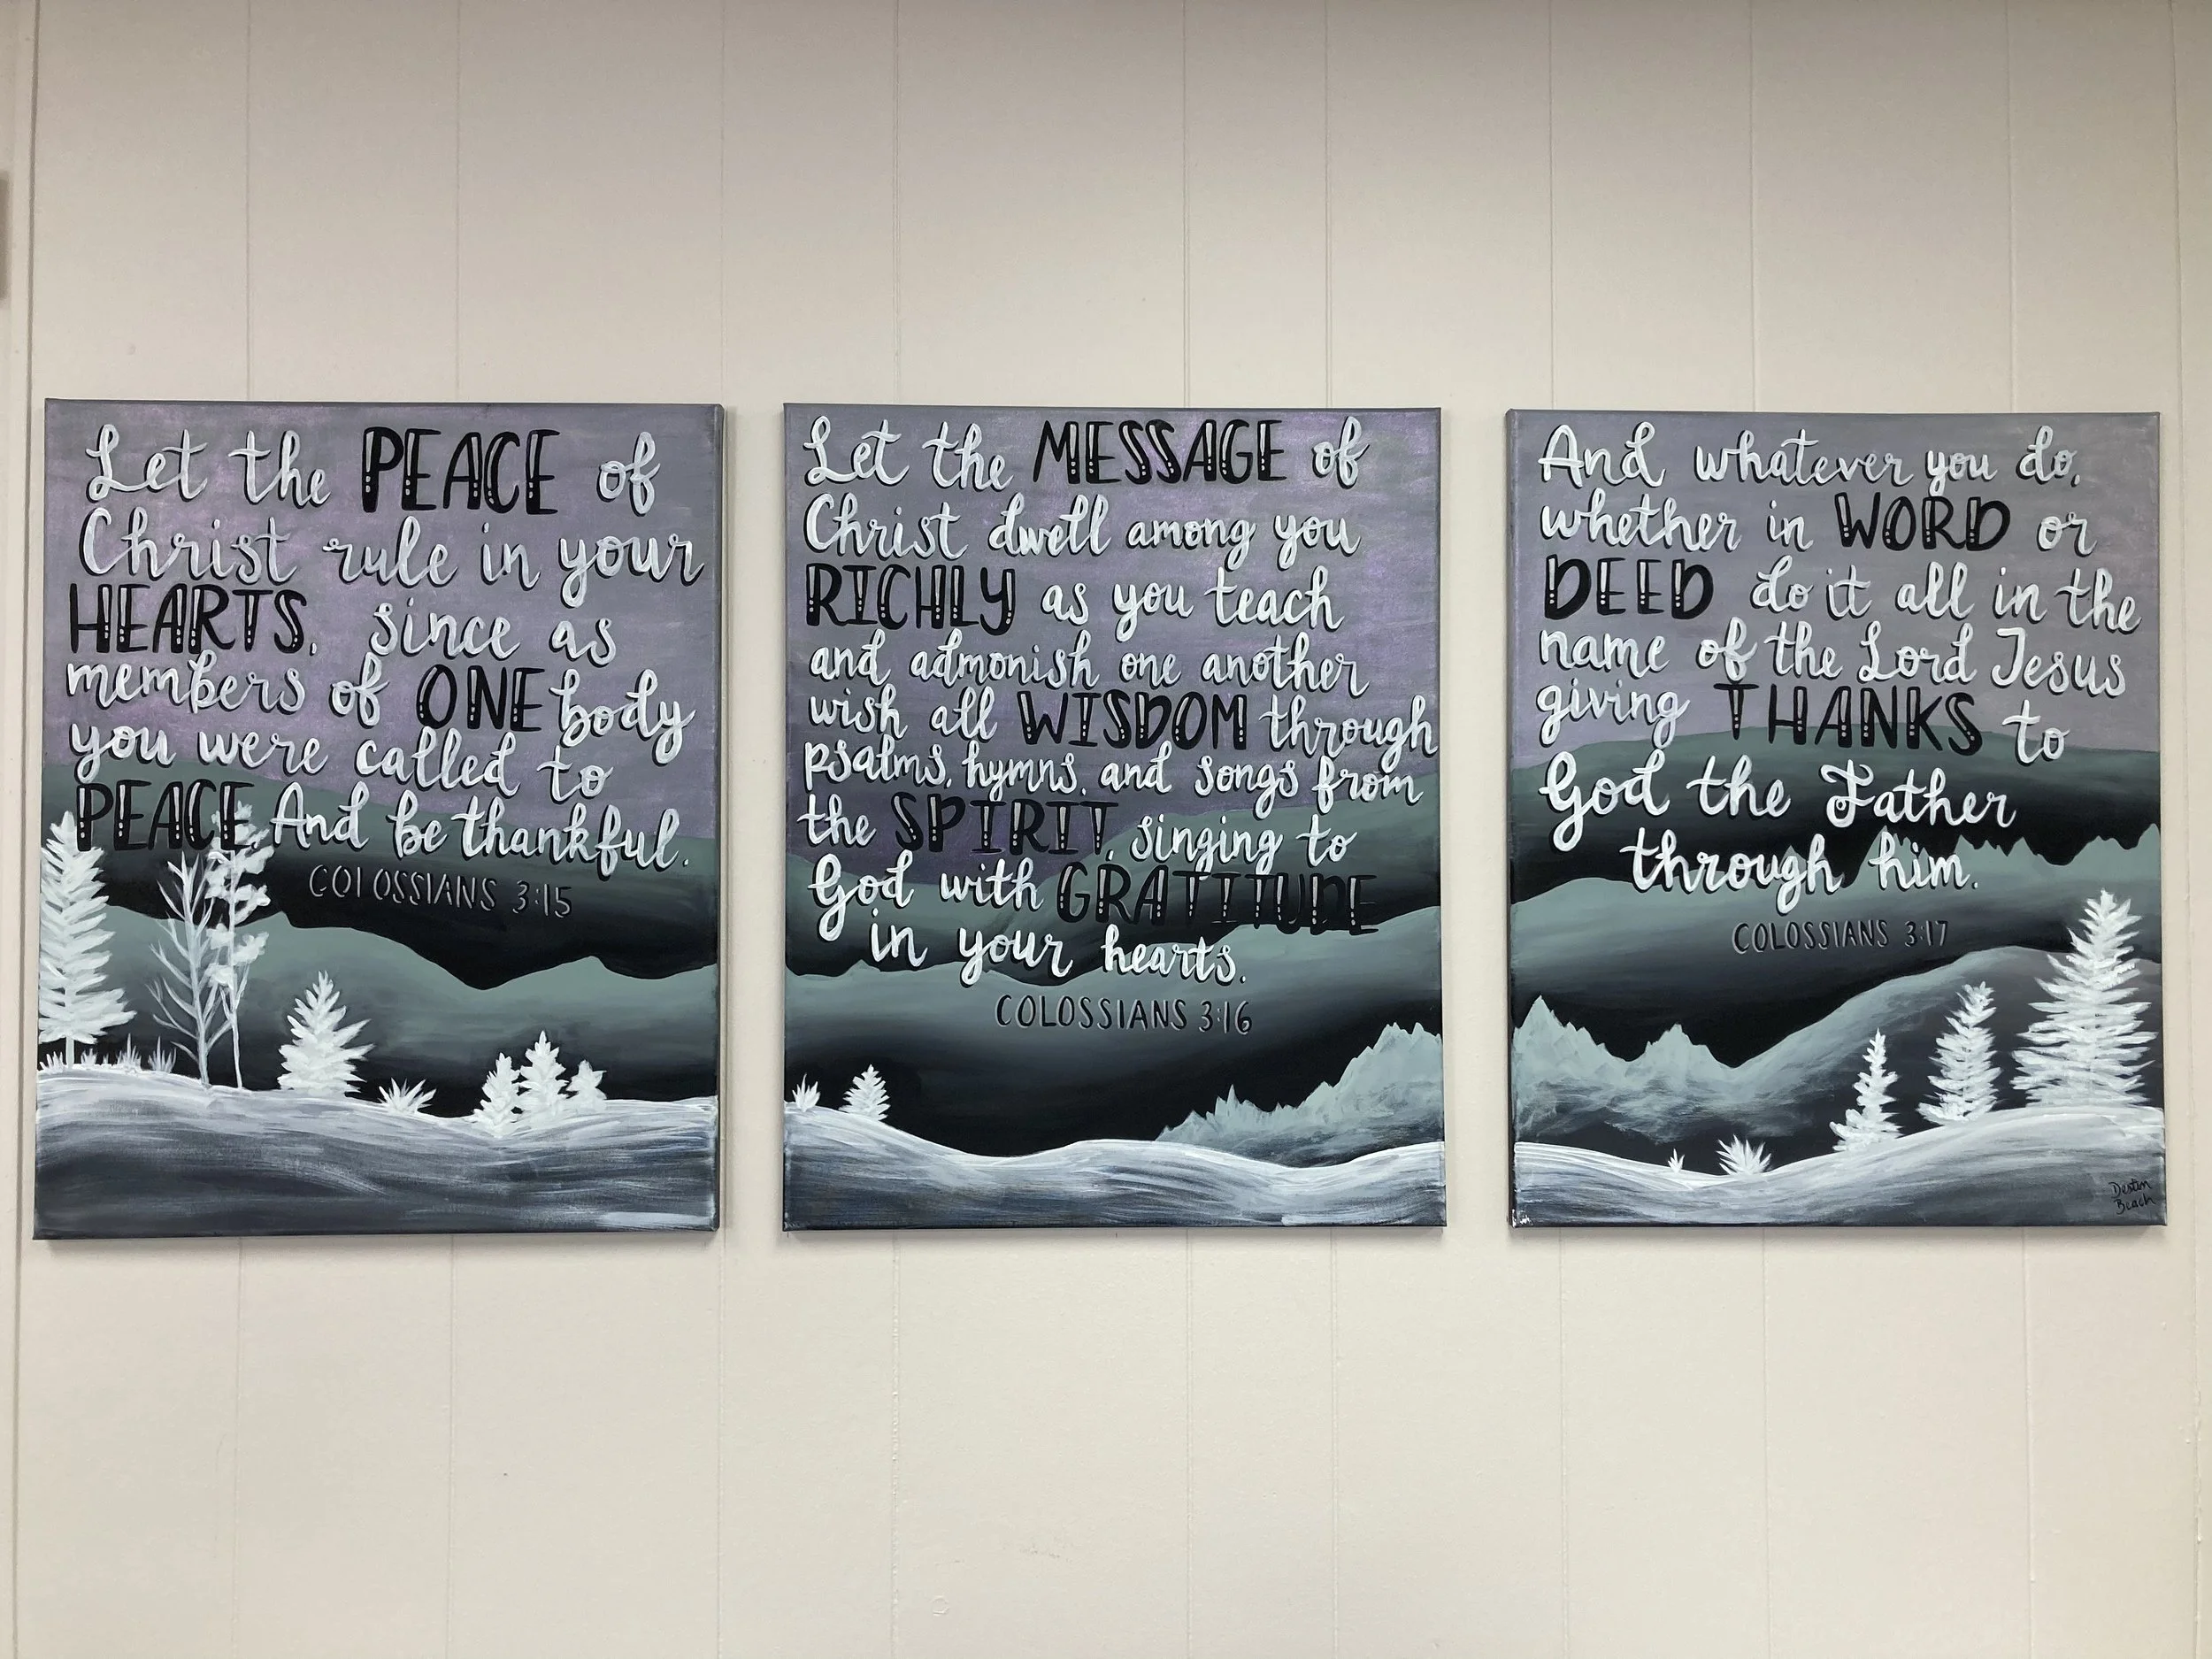 Let the PEACE of
Christ rule in your
HEARTS, since as
members of ONE body
you were called to
PEACE. And be thankful.
COLOSSIANS 3:15
Let the MESSAGE of
Christ dwell among you
RICHLY as you teach
and admonish one another
wish all WISDOM through
psalms, hymns, and songs from
the SPIRIT, singing to
God with GRATITUDE
in your hearts.
COLOSSIANS 3:16
And whatever you do,
whether in WORD or
DEED do it all in the
name of the Lord Jesus
giving THANKS to
God the Father
through him.
COLOSSIANS 3:17
Destin
Beach